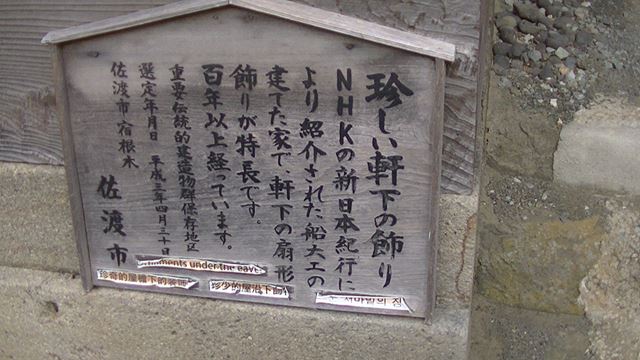 珍しい軒下の飾り
NHKの新日本紀行に
より紹介された船大工の
建てた家で、軒下の扇形
飾りが特長です。
百年以上経っています。
重要伝統的建造物群保存地区
選定年月日 平成三年四月三十日
佐渡市宿根木
佐渡市
under the eaves
珍奇的屋檐下的装饰
珍少的屋沿下飾
처마밑의 짐